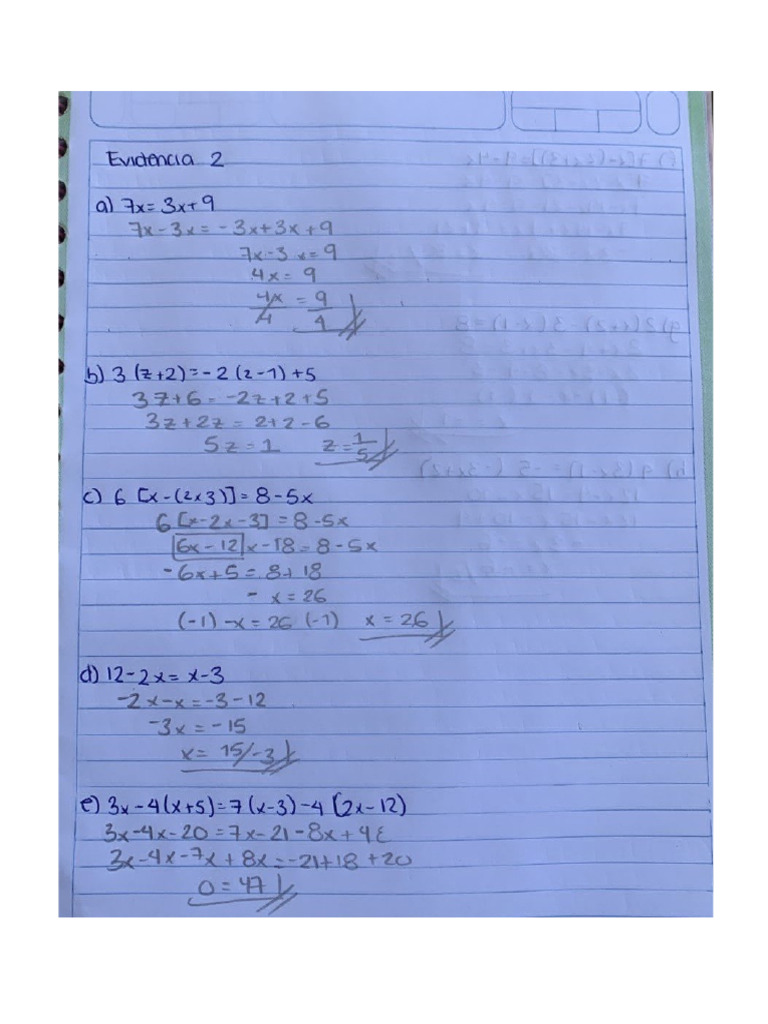 Evidencia 2
a) 7x = 3x + 9
7x - 3x = - 3x + 3x + 9
7x - 3 x = 9
4x = 9
4x/4 = 9/4
b) 3 (z + 2) = - 2 (z - 1) + 5
3z + 6 = -2z + 2 + 5
3z + 2z = 2 + 2 - 6
5z = 1 z = 1/5
c) 6 [x - (2x3)] = 8 - 5x
6 [x - 2x - 3] = 8 - 5x
6x - 12 x - 18 = 8 - 5x
- 6x + 5 = 8 + 18
- x = 26
(-1) - x = 26 (-1) x = 26
d) 12 - 2x = x - 3
-2x - x = -3 - 12
-3x = -15
x = 15/-3
e) 3x - 4(x + 5) = 7(x - 3) - 4 [2x - 12)
3x - 4x - 20 = 7x - 21 - 8x +
3x - 4x - 7x + 8x = -21 + 18 + 20
0 = 47